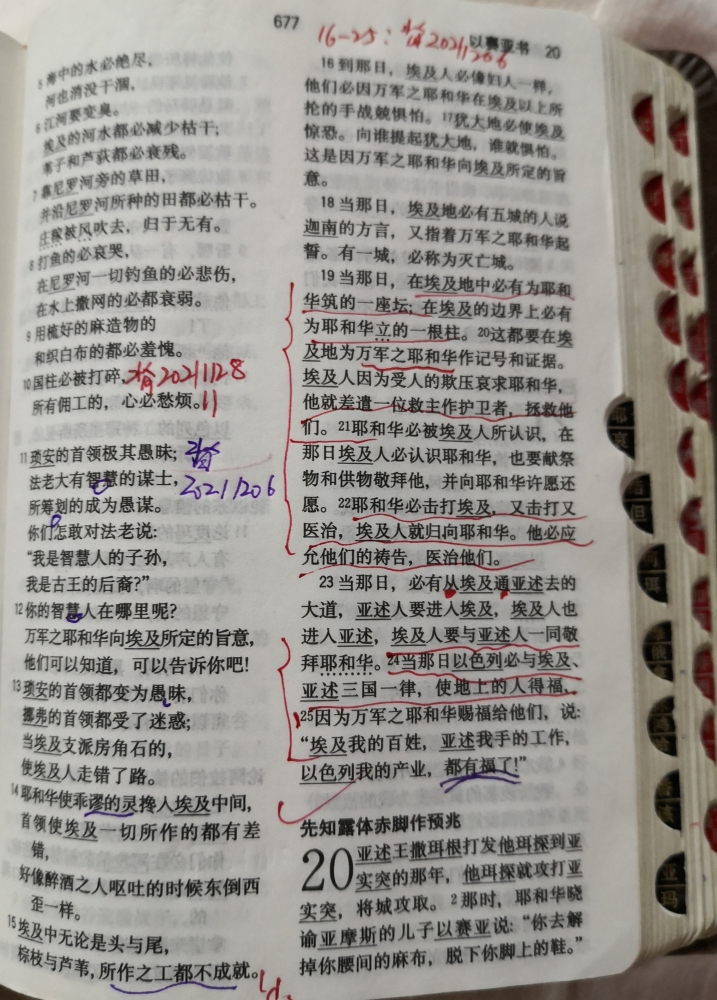 677
16-25: 2021206
以赛亚书 20
5 海中的水必绝尽，
河也消没干涸，
6 江河要变臭。
埃及的河水都必减少枯干；
苇子和芦荻都必衰残。
7 靠尼罗河旁的草田，
并沿尼罗河所种的田都必枯干。
庄稼被风吹去，归于无有。
8 打鱼的必哀哭，
在尼罗河一切钓鱼的必悲伤，
在水上撒网的必都衰弱。
9 用梳好的麻造物的
和织白布的都必羞愧。
10 国柱必被打碎， 20211128
所有佣工的，心必愁烦。
11 琐安的首领极其愚昧；
法老大有智慧的谋士，
20211206
所筹划的成为愚谋。
你们怎敢对法老说：
“我是智慧人的子孙，
我是古王的后裔？”
12 你的智慧人在哪里呢？
万军之耶和华向埃及所定的旨意，
他们可以知道，可以告诉你吧！
13 琐安的首领都变为愚昧，
挪弗的首领都受了迷惑；
当埃及支派房角石的，
使埃及人走错了路。
14 耶和华使乖谬的灵搀入埃及中间，
首领使埃及一切所作的都有差
错，
好像醉酒之人呕吐的时候东倒西
歪一样。
15 埃及中无论是头与尾，
棕枝与芦苇，所作之工都不成就。
16 到那日，埃及人必像妇人一样，
他们必因万军之耶和华在埃及以上所
抡的手战兢惧怕。17 犹大地必使埃及
惊恐。向谁提起犹大地，谁就惧怕。
这是因万军之耶和华向埃及所定的旨
意。
18 当那日，埃及地必有五城的人说
迦南的方言，又指着万军之耶和华起
誓。有一城，必称为灭亡城。
19 当那日，在埃及地中必有为耶和
华筑的一座坛；在埃及的边界上必有
为耶和华立的一根柱。20 这都要在埃
及地为万军之耶和华作记号和证据。
埃及人因为受人的欺压哀求耶和华，
他就差遣一位救主作护卫者，拯救他
们。21 耶和华必被埃及人所认识，在
那日埃及人必认识耶和华，也要献祭
物和供物敬拜他，并向耶和华许愿还
愿。22 耶和华必击打埃及，又击打又
医治，埃及人就归向耶和华。他必应
允他们的祷告，医治他们。
23 当那日，必有从埃及通亚述去的
大道，亚述人要进入埃及，埃及人也
进入亚述，埃及人要与亚述人一同敬
拜耶和华。24 当那日以色列必与埃及、
亚述三国一律，使地上的人得福，
25 因为万军之耶和华赐福给他们，说：
“埃及我的百姓，亚述我手的工作，
以色列我的产业，都有福了！”
先知露体赤脚作预兆
20 亚述王撒珥根打发他珥探到亚
实突的那年，他珥探就攻打亚
实突，将城攻取。2 那时，耶和华晓
谕亚摩斯的儿子以赛亚说：“你去解
掉你腰间的麻布，脱下你脚上的鞋。”
阿
珥
亚
玛